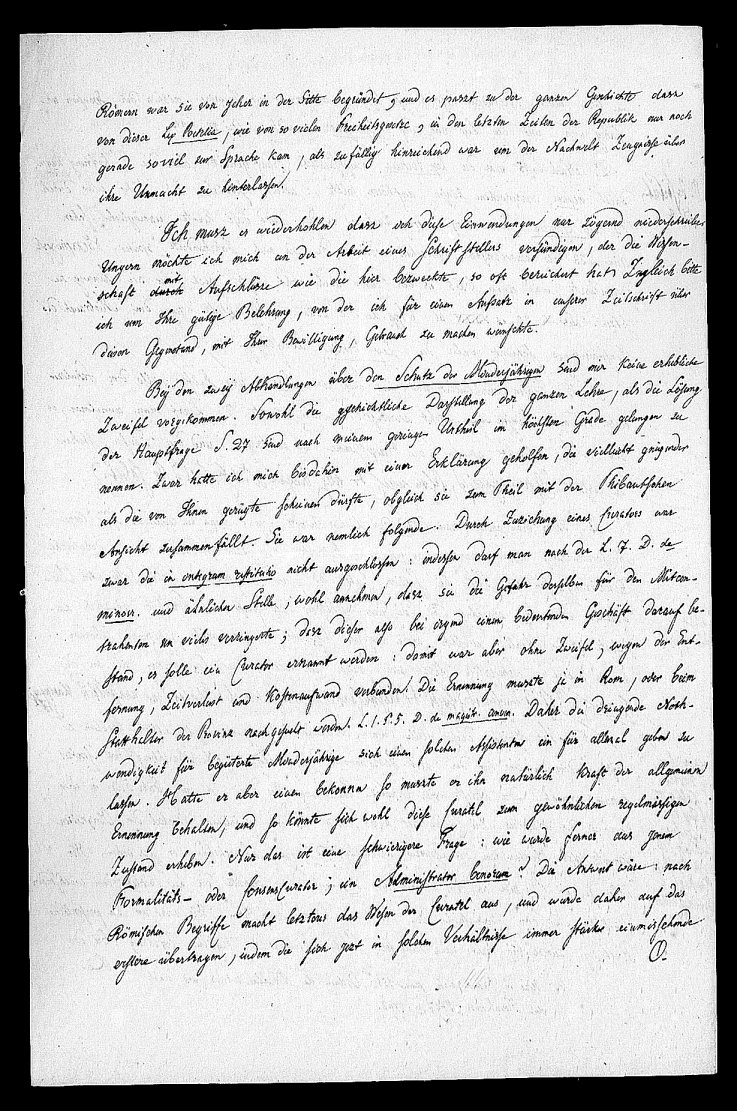 Römern war sie von jeher in der Sitte begründet, und es passt zu der ganzen Geschichte dass
von dieser Lex Poetelia, wie von so vielen Freiheitsgesetze, in den letzten Zeiten der Republik nur noch
gerade soviel zur Sprache kam, als zufällig hinreichend war um der Nachwelt Zeugnisse über
ihre Unmacht zu hinterlassen.
Ich muss es wiederhohlen dass ich diese Einwendungen nur zögernd niederschreibe.
Ungern möchte ich mich an der Arbeit eines Schriftstellers versündigen, der die Wissen-
schaft mit Aufschlüsse wie die hier bezweckte, so oft bereichert hat. Zugleich bitte
ich um Ihre gütige Belehrung, von der ich für einen Aufsatz in unserer Zeitschrift über
diesen Gegenstand, mit Ihrer Bewilligung, Gebrauch zu machen wünschte.
Bey den zwey Abhandlungen über den Schutz der Minderjährigen sind mir keine erhebliche
Zweifel vorgekommen. Sowohl die geschichtliche Darstellung der ganzen Lehre, als die Lösung
der Hauptfrage S. 27 sind nach meinem geringen Urtheil im höchsten Grade gelungen zu
nennen. Zwar hatte ich mich bisdahin mit einer Erklärung geholfen, die vielleicht gesunder
als die von Ihnen gerügte scheinen dürfte, obgleich sie zum Theil mit der Thibautschen
Ansicht zusammenfällt. Sie war nemlich folgende. Durch Zuziehung eines Curators war
zwar die in integrum restitutio nicht ausgeschlossen: indessen darf man nach der L. 7. D. de
minor. und ähnlichen Stelle, wohl annehmen, dass sie die Gefahr derselben für den Mitcon-
trahenten um vieles verringerte; dass dieser also bei irgend einem bedeutenden Geschäft darauf be-
stand, es solle ein Curator ernannt werden: damit war aber ohne Zweifel, wegen der Ent-
fernung, Zeitverlust und Kostenaufwand verbunden. Die Ernennung musste ja in Rom, oder beim
Statthalter der Provinz nachgesucht werden. L. 1. §. 5. D. de magistr. conven. Daher die dringende Noth-
wendigkeit für begüterte Minderjährige sich einen solchen Assistenten ein für allemal geben zu
lassen. Hatte er aber einen bekommen so musste er ihn natürlich kraft der allgemeinen
Ernennung behalten, und so könnte sich wohl diese Curatel zum gewöhnlichen regelmässigen
Zustand erheben. Nur das ist eine schwierigere Frage: wie wurde ferner aus jenem
Formalitäts- oder Consenscurator, ein Administrator bonorum? Die Antwort wäre: nach
Römischen Begriffe macht letzteres das Wesen der Curatel aus, und wurde daher auf das
erstere übertragen, indem die sich jezt in solchen Verhältnisse immer stärker einmischende